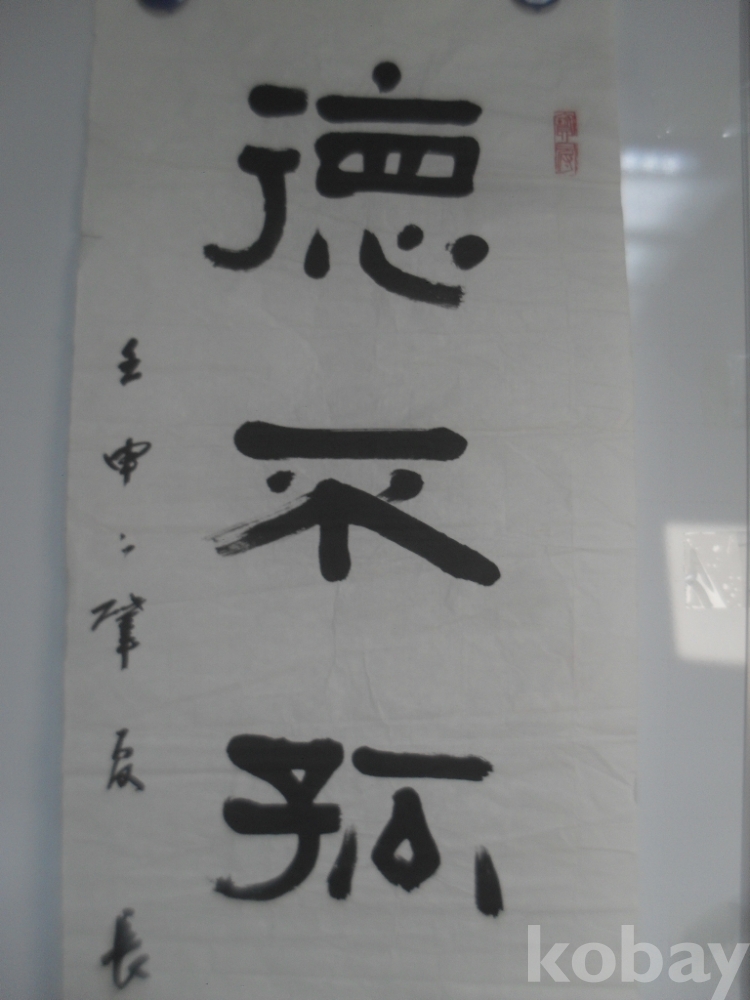 德不孤
壬申之肇夏長
kobay